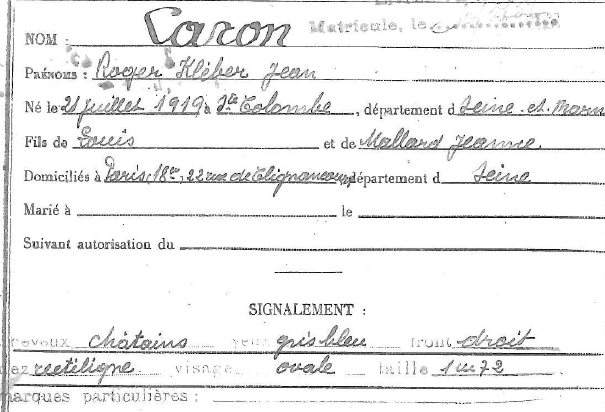 NOM : Caron
Matricule, le
Prénoms : Roger Kléber Jean
Né le 21 juillet 1919 à Ste Colombe, département d Seine-et-Marn
Fils de Louis et de Mallard Jeanne
Domiciliés à Paris, 18e, 22 rue de Clignancourt, département d Seine
Marié à le
Suivant autorisation du
SIGNALEMENT :
cheveux châtains yeux gris bleu front droit
nez rectiligne visage ovale taille 1m72
marques particulières :